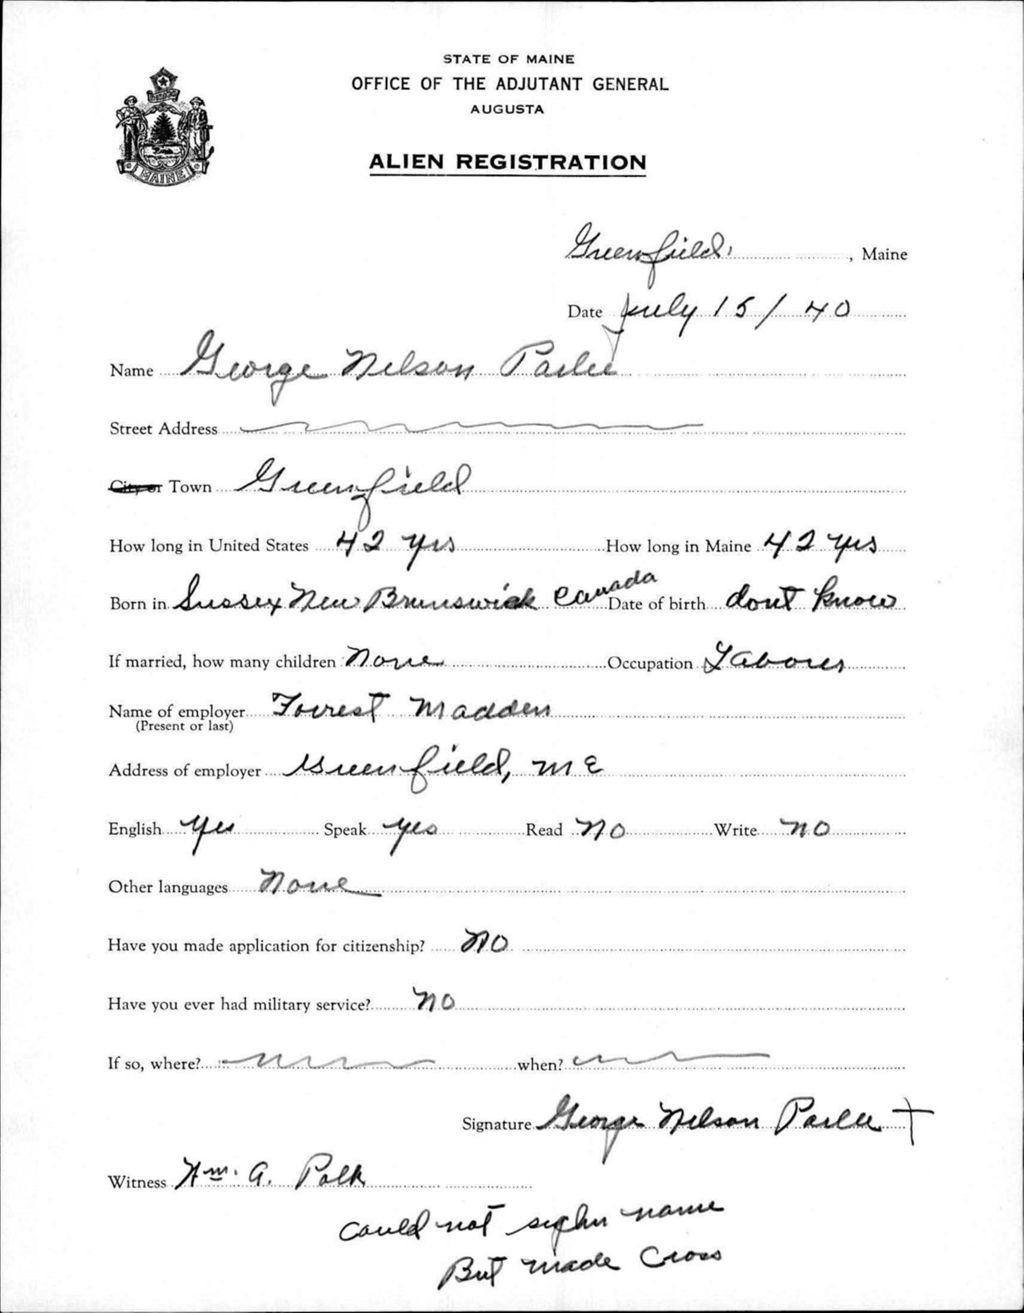 STATE OF MAINE
OFFICE OF THE ADJUTANT GENERAL
AUGUSTA
ALIEN REGISTRATION
MAINE
Greenfield, , Maine
Date July 15/40
Name George Nelson Parlee
Street Address
City or Town Greenfield
How long in United States 42 yrs How long in Maine 42 yrs
Born in Sussex New Brunswick Canada Date of birth dont know
If married, how many children None Occupation Laborer
Name of employer Forrest Madden
(Present or last)
Address of employer Greenfield, ME
English Yes Speak yes Read No Write no
Other languages None
Have you made application for citizenship? No
Have you ever had military service? no
If so, where? when?
Signature George Nelson Parlee +
Witness Wm. A. Polk
Could not name
But made Cross